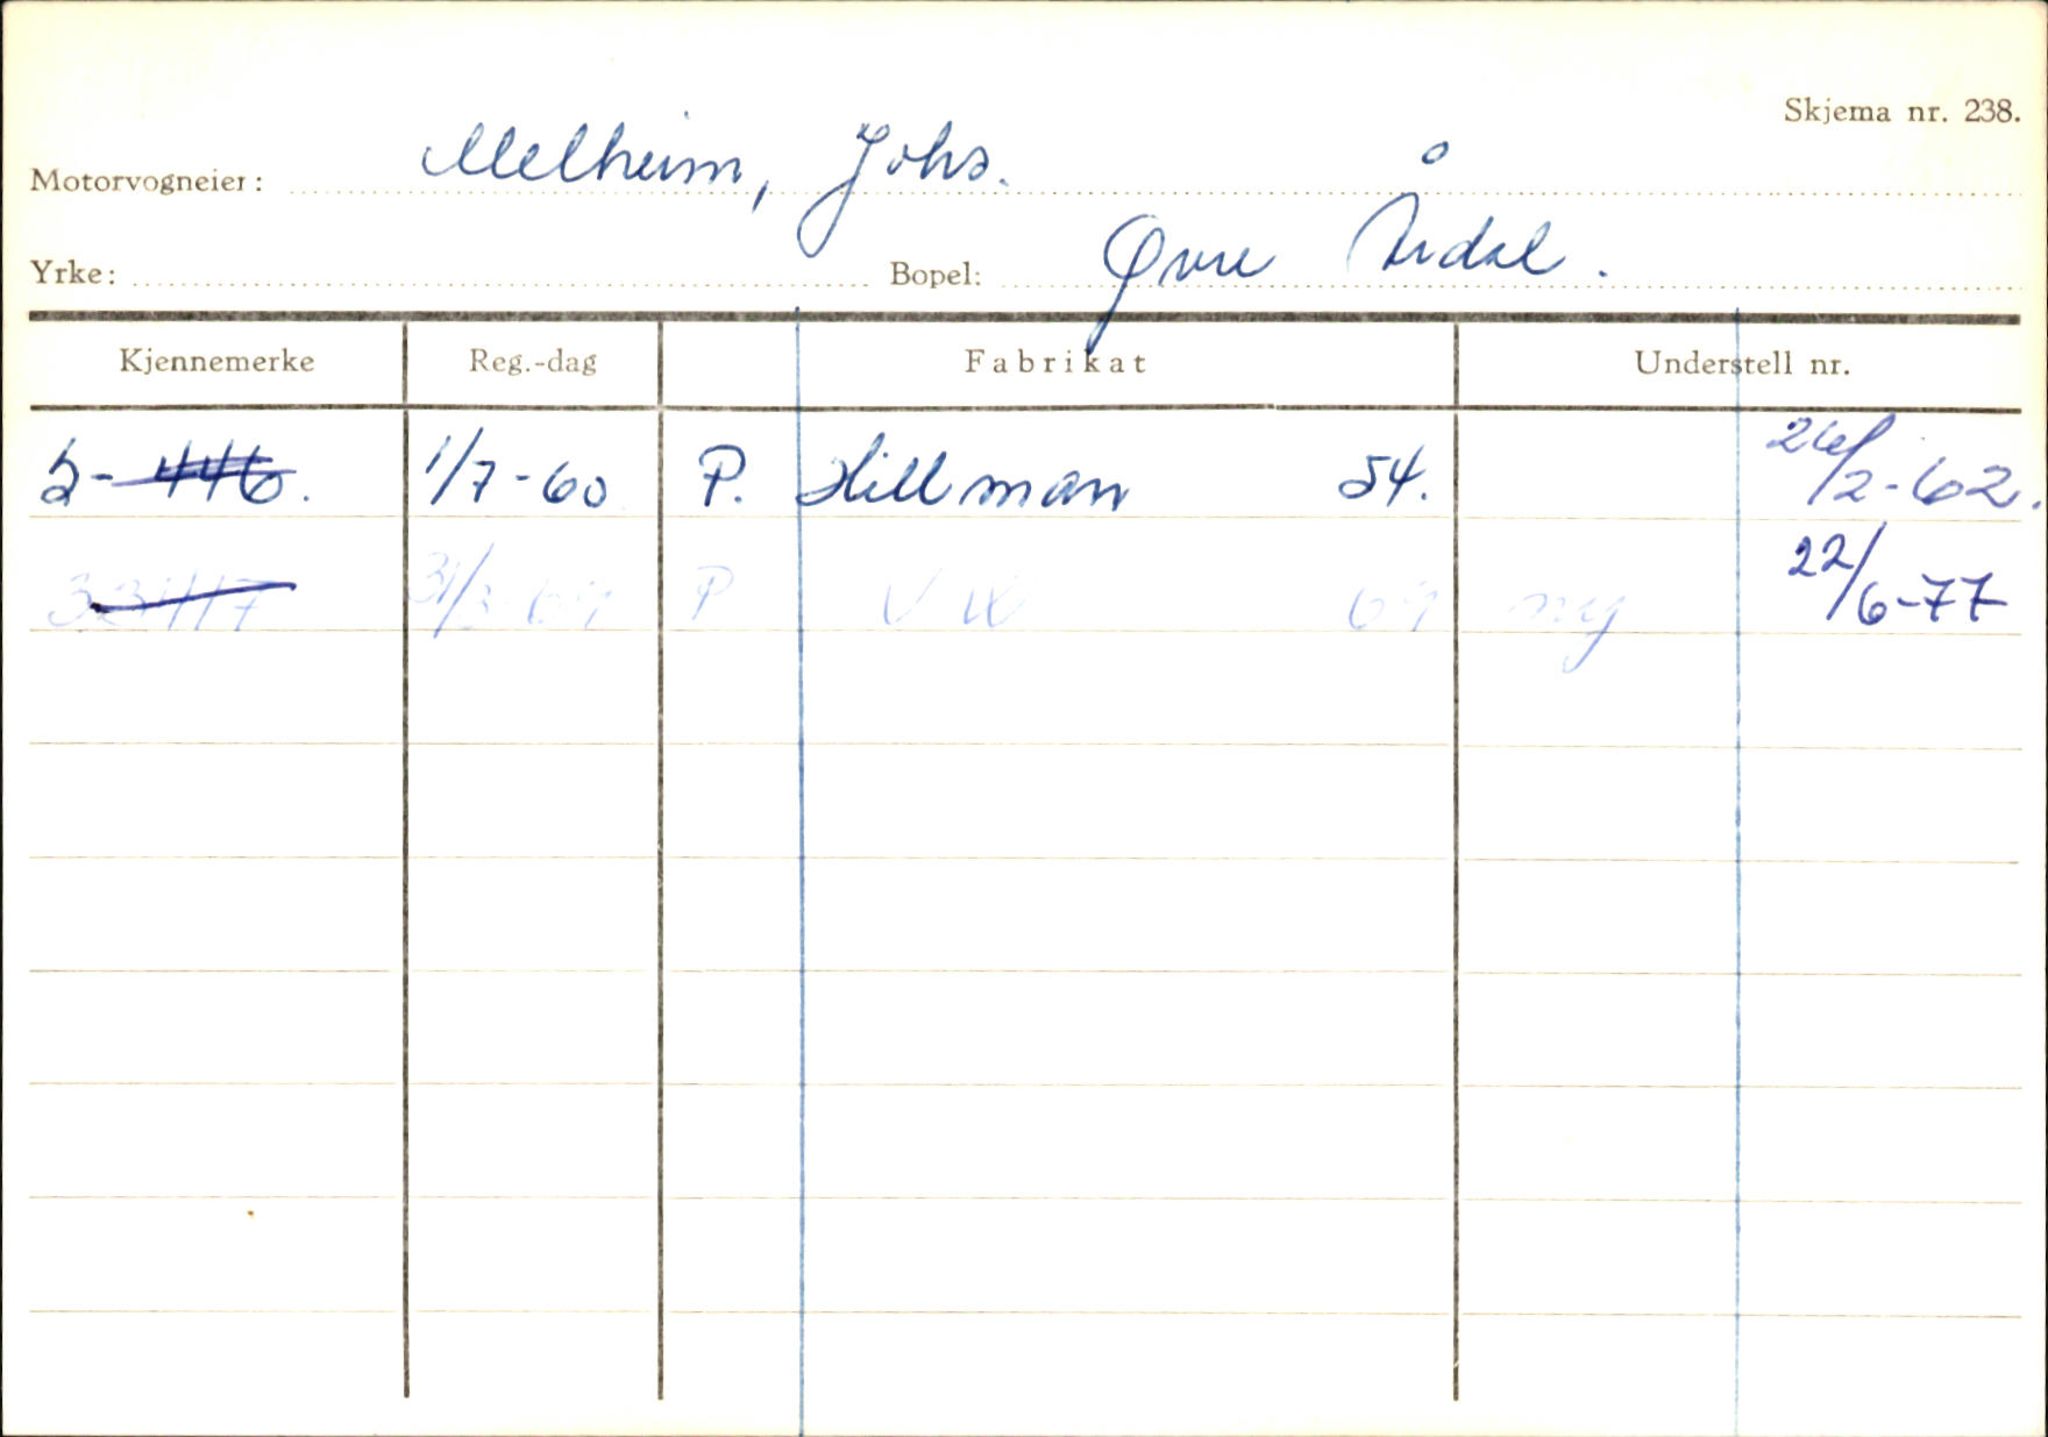 Skjema nr. 238.
Motorvogneier: Melheim, Johs.
Yrke: Bopel: Øvre Årdal.
Kjennemerke Reg.-dag Fabrikat Understell nr.
S- 446. 1/7-60 P. Hillman 54. 26/2-62.
33417 31/3-69 P VW 69 ny 22/6-77